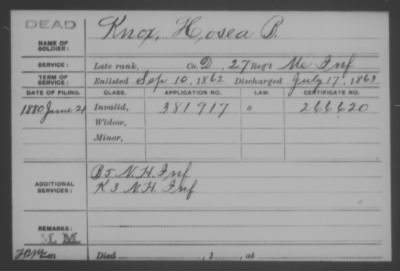 DEAD
NAME OF SOLDIER: Knox, Hosea B.
SERVICE: Late rank, Co. D, 27 Reg't Me Inf
TERM OF SERVICE: Enlisted Sep. 10, 1862 Discharged July 17, 1863
DATE OF FILING. CLASS. APPLICATION NO. LAW. CERTIFICATE NO.
1880 June 21 Invalid, 381917 266620
Widow,
Minor,
ADDITIONAL SERVICES: B 5 N.H. Inf
K 3 N.H. Inf
REMARKS:
Died , 1 , at